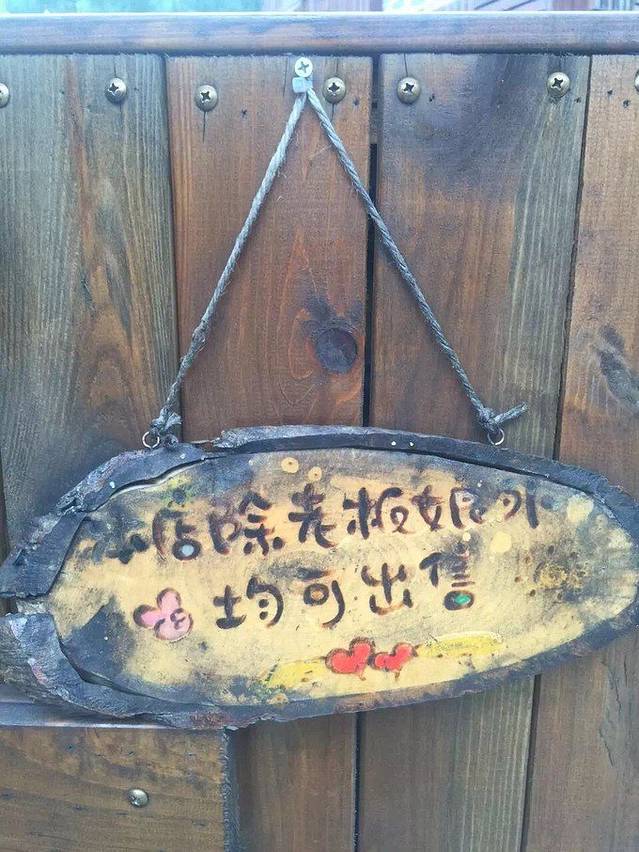 小店除老板娘外
均可出售